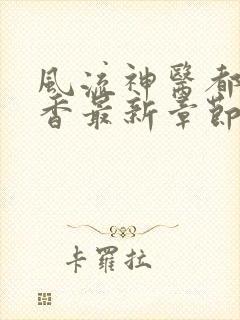 風流神醫都
香最新章節
卡羅拉